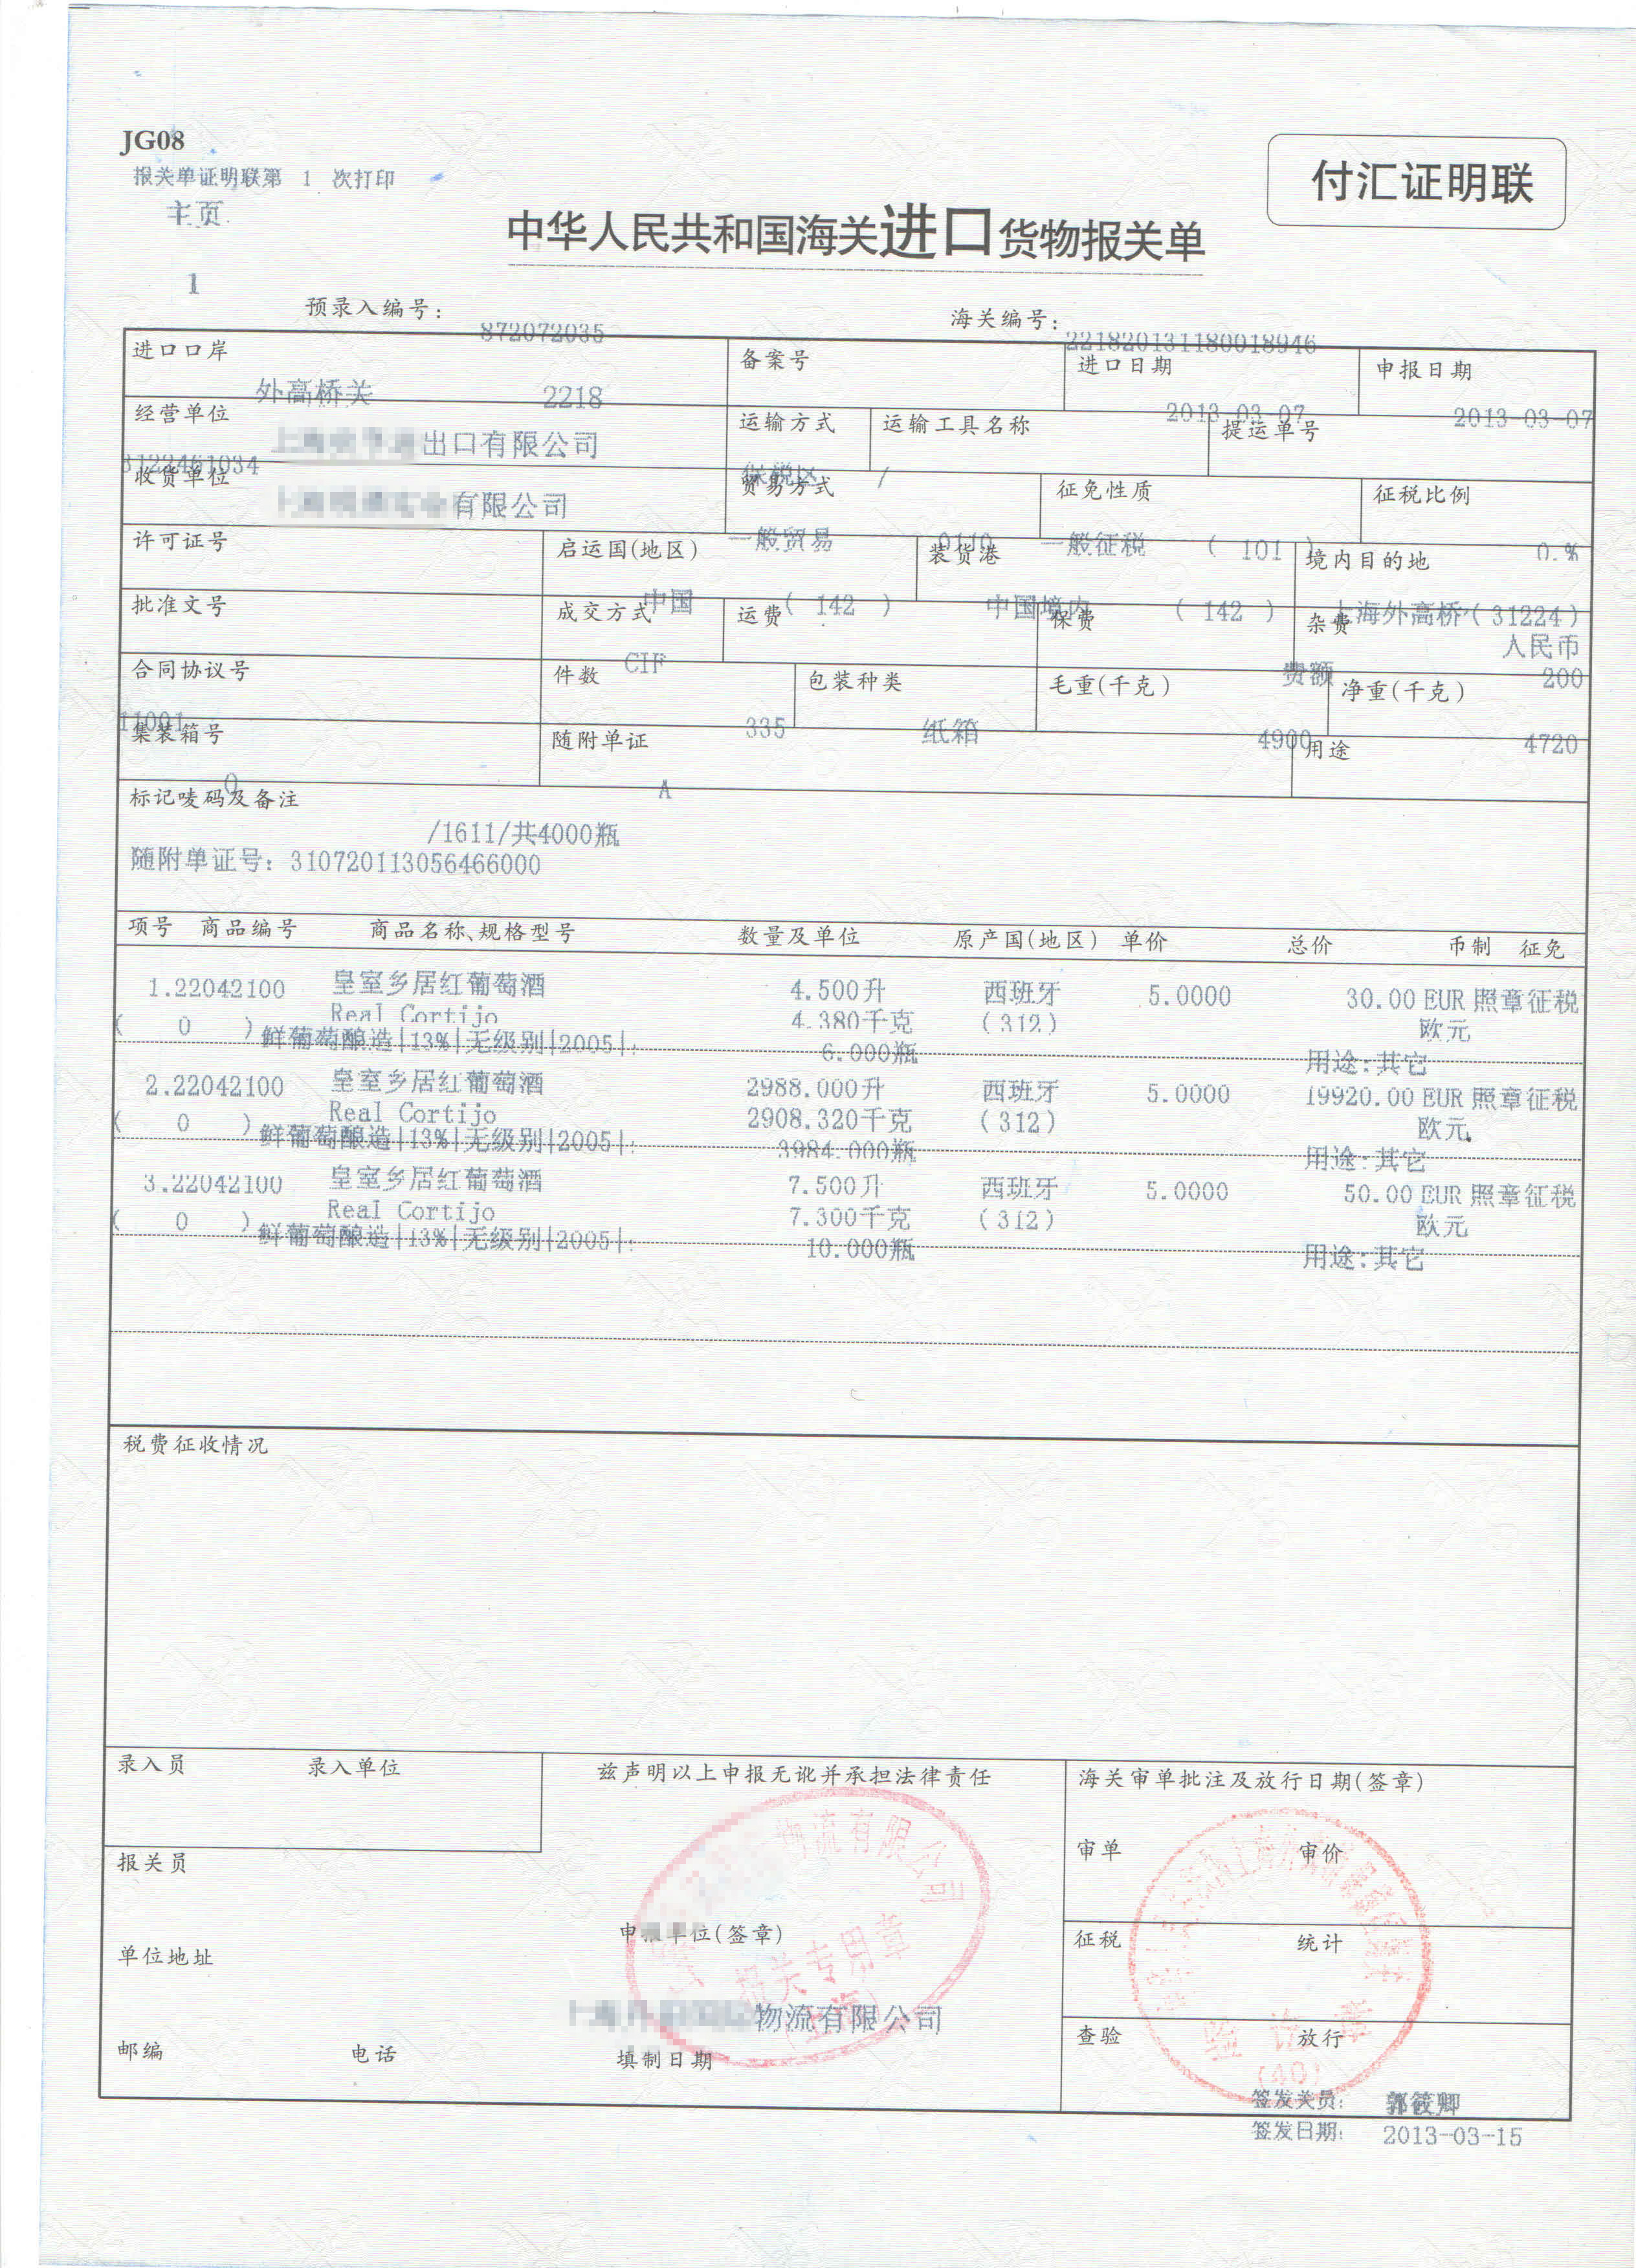 JG08
报关单证明联第 1 次打印
主页
付汇证明联
中华人民共和国海关进口货物报关单
1
预录入编号: 872072035 海关编号: 221820131180018946
进口口岸 备案号 进口日期 申报日期
外高桥关 2218 2013-03-07 2013-03-07
经营单位 运输方式 运输工具名称 提运单号
出口有限公司
3122461034 保税区 /
收货单位 贸易方式 征免性质 征税比例
有限公司
一般贸易 0110 一般征税 ( 101 ) 0.%
许可证号 启运国(地区) 装货港 境内目的地
中国 ( 142 ) 中国境内 ( 142 ) 上海外高桥(31224)
批准文号 成交方式 运费 保费 杂费
人民币
CIF 费额 200
合同协议号 件数 包装种类 毛重(千克) 净重(千克)
11001 335 纸箱 4900 4720
集装箱号 随附单证 用途
0 A
标记唛码及备注
/1611/共4000瓶
随附单证号: 310720113056466000
项号 商品编号 商品名称、规格型号 数量及单位 原产国(地区) 单价 总价 币制 征免
1.22042100 皇室乡居红葡萄酒 4.500升 西班牙 5.0000 30.00 EUR 照章征税
( 0 ) Real Cortijo 4.380千克 (312) 欧元
鲜葡萄酿造|13%|无级别|2005|: 6.000瓶 用途:其它
2.22042100 皇室乡居红葡萄酒 2988.000升 西班牙 5.0000 19920.00 EUR 照章征税
( 0 ) Real Cortijo 2908.320千克 (312) 欧元
鲜葡萄酿造|13%|无级别|2005|: 3984.000瓶 用途:其它
3.22042100 皇室乡居红葡萄酒 7.500升 西班牙 5.0000 50.00 EUR 照章征税
( 0 ) Real Cortijo 7.300千克 (312) 欧元
鲜葡萄酿造|13%|无级别|2005|: 10.000瓶 用途:其它
税费征收情况
录入员 录入单位 兹声明以上申报无讹并承担法律责任 海关审单批注及放行日期(签章)
物流有限公司
审单 审价
报关员
申 单位(签章)
报关专用章
征税 统计
单位地址
物流有限公司
查验 放行
验讫章
(40)
邮编 电话 填制日期
签发关员: 郭筱卿
签发日期: 2013-03-15